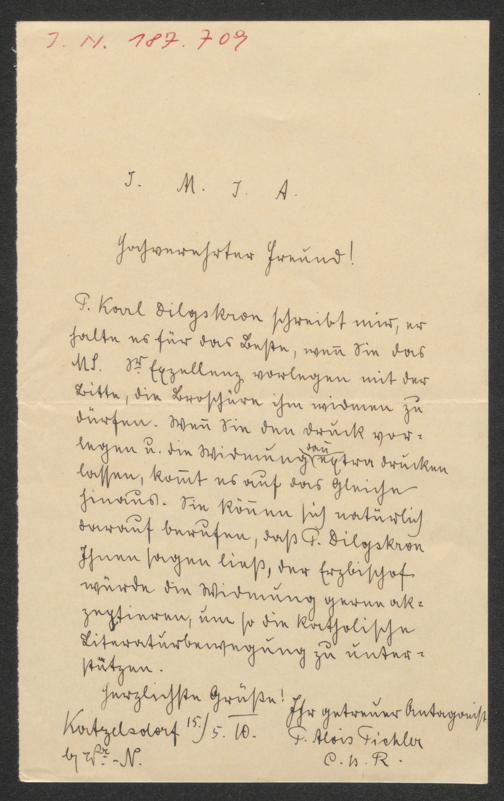 J. N. 187.709
J. M. J. A.
Hochverehrter Freund!
P. Karl Dilgskron schreibt mir, er
halte es für das Beste, wen̄ Sie das
MS. Sr Exzellenz vorlegen mit der
Bitte, die Broschüre ihm widmen zu
dürfen. Wen̄ Sie den Druck vor-
legen u. die Widmung dan̄ extra drucken
lassen, kom̄t es auf das Gleiche
hinaus. Sie kön̄en sich natürlich
darauf berufen, daß P. Dilgskron
Ihnen sagen ließ, der Erzbischof
würde die Widmung gerne ak-
zeptieren, um so die katholische
Literaturbewegung zu unter-
stützen.
Herzlichste Grüße! Ihr getreuer Antagonist
Katzelsdorf 15./5. 10. P. Alois Pichler
b/ Wr.-N. C. ss. R.